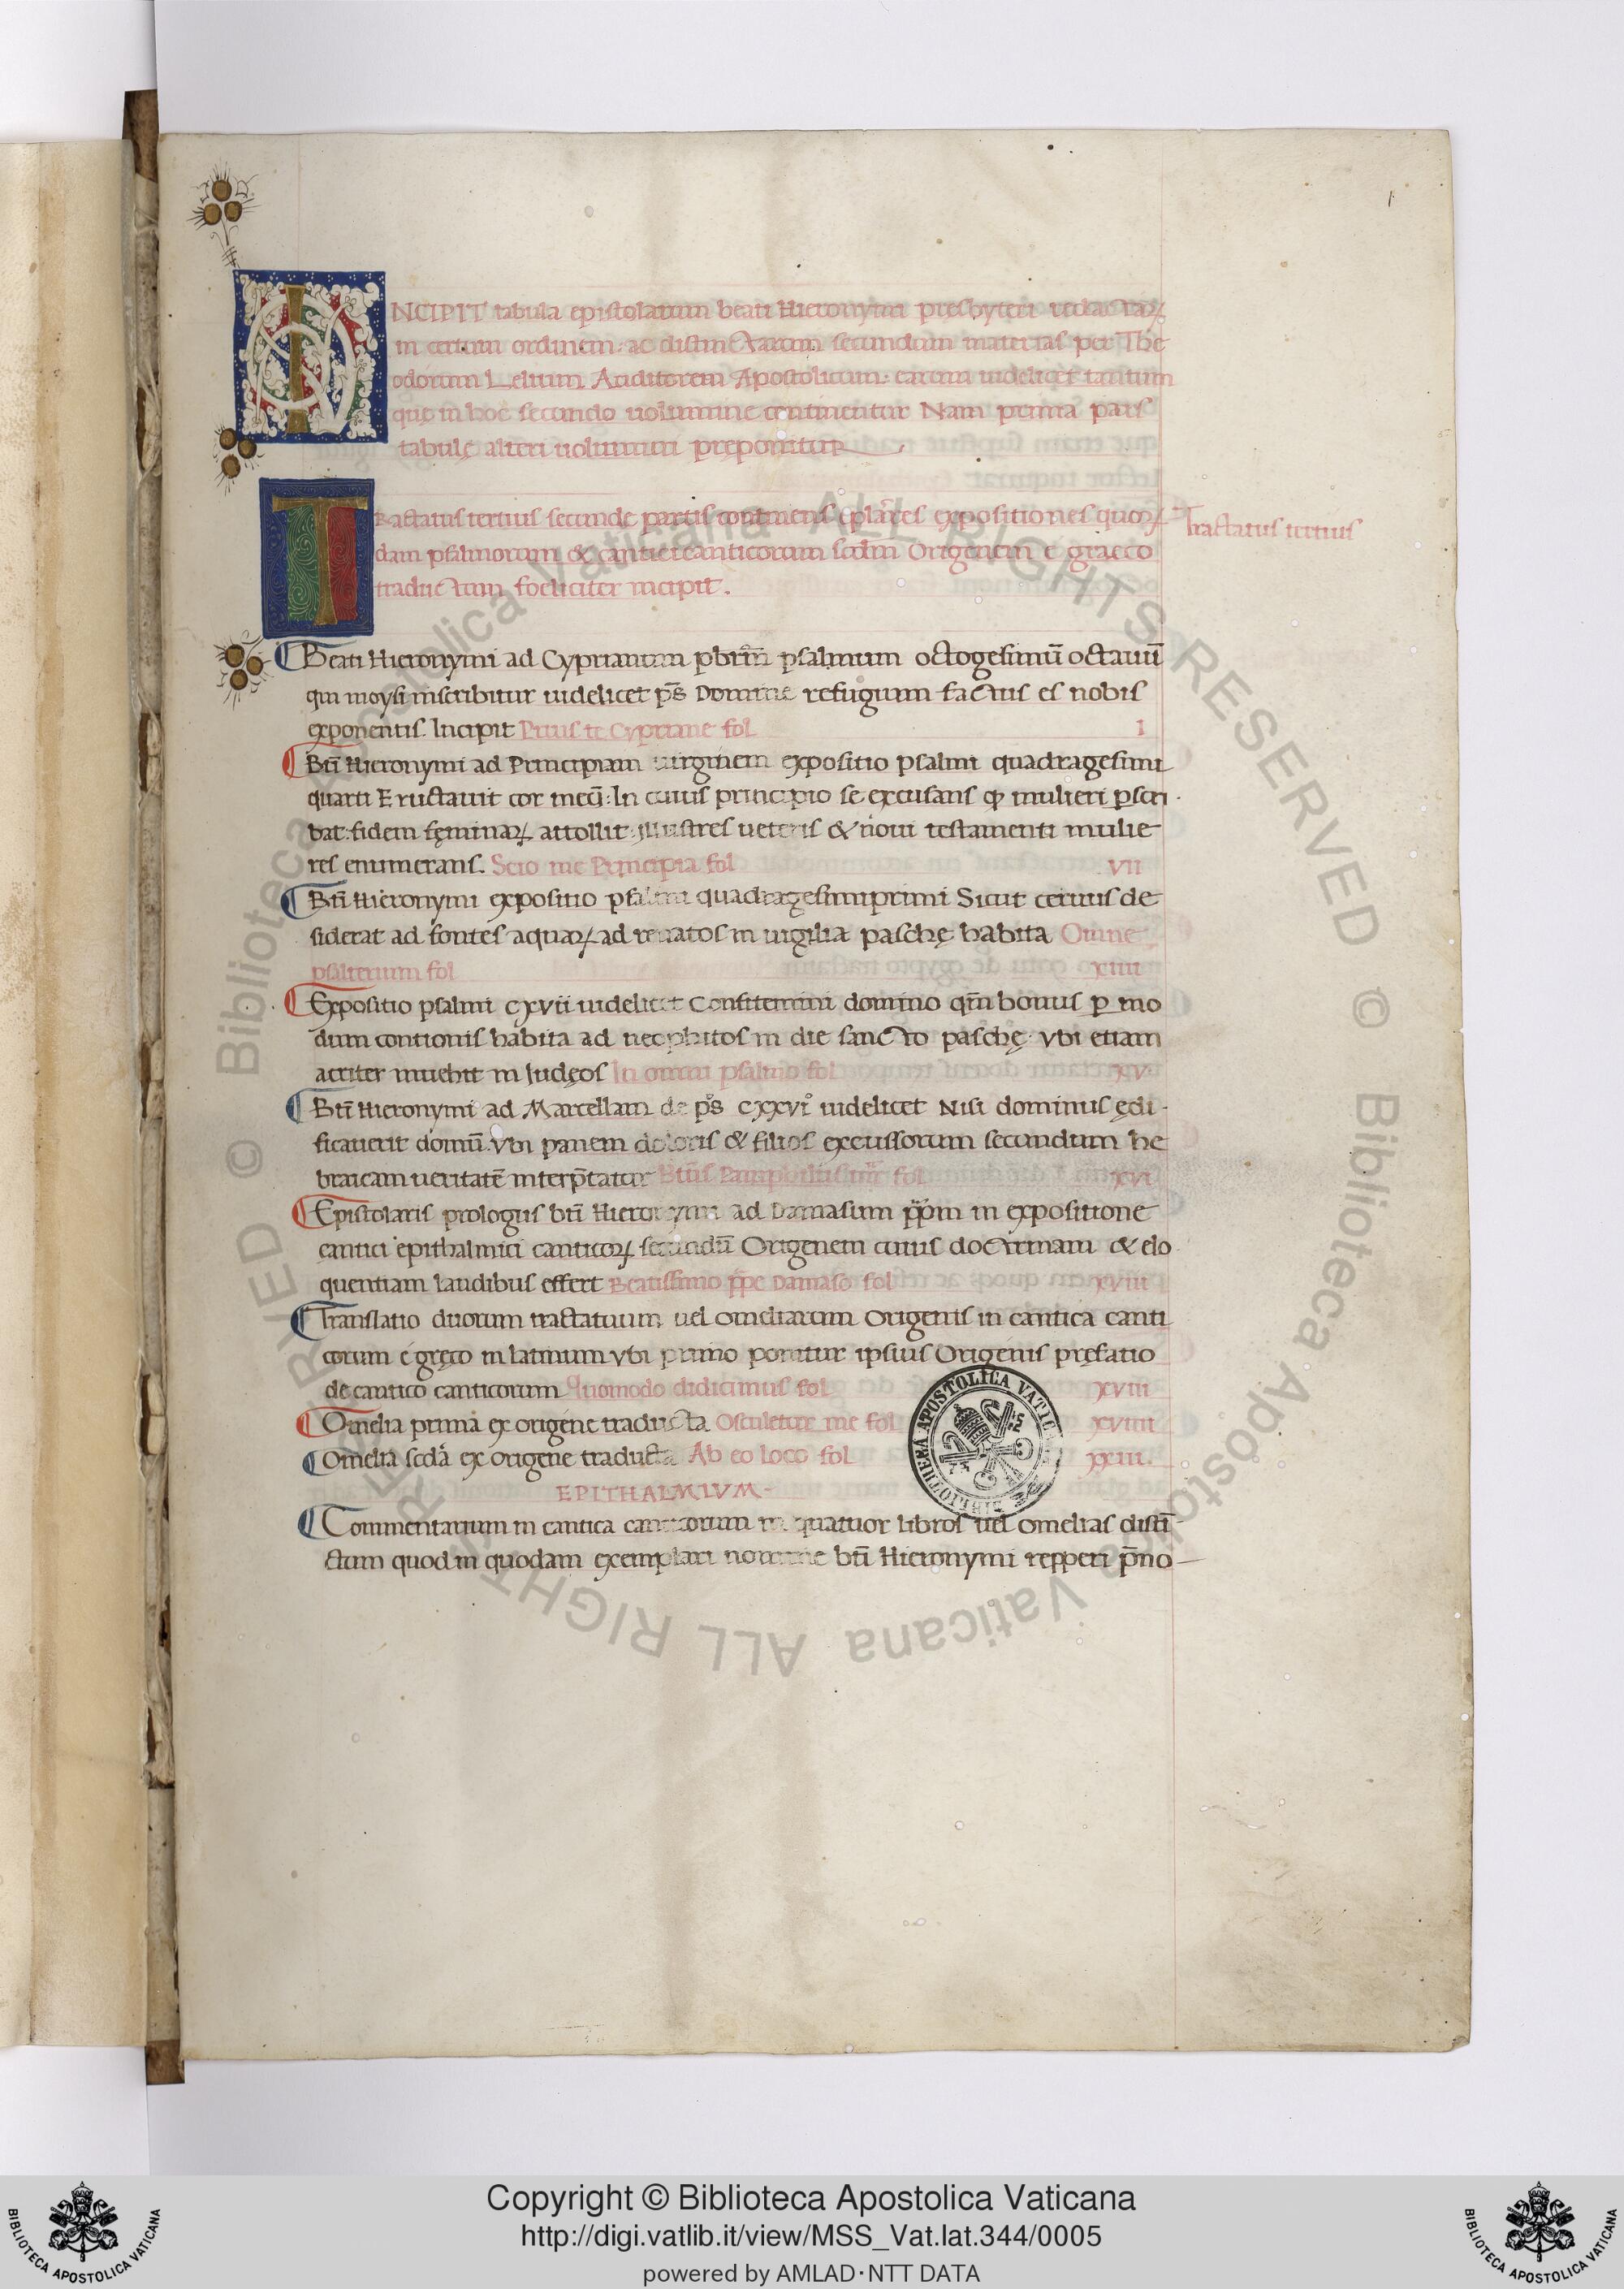 1
INCIPIT tabula epistolarum beati Hieronymi presbyteri redactaꝝ
in certum ordinem: ac distinctarum secundum materias per The
odorum Lelium Auditorem Apostolicum: earum uidelicet tantum
quę in hoc secundo uolumine continentur Nam prima pars
tabulę alteri uolumini pręponitur
Tractatus tertius secunde partis continens eplares expositiones quoꝝ
dam psalmorum & cantici canticorum scdm Origenem e graeco
traductum foeliciter incipit.
Tractatus tertius
Beati Hieronymi ad Cyprianum pbrm̄ psalmum octogesimū octauū
qui moysi inscribitur uidelicet ps̄ Domine refugium factus es nobis
exponentis. Incipit Prius te Cypriane fol I
Bti̅ Hieronymi ad Principiam uirginem expositio psalmi quadragesimi
quarti Eructauit cor meū: In cuius principio se excusans ꝙ mulieri pscri
bat: fidem fęminaꝝ attollit illustres ueteris & noui testamenti mulie
res enumerans. Scio me Principia fol VII
Bti̅ Hieronymi expositio psalmi quadragesimiprimi Sicut ceruus de
siderat ad fontes aquaꝝ ad renatos in uigilia paschę habita Omne
psalterium fol XIIII
Expositio psalmi cxvii uidelicet Confitemini domino qm̄ bonus ꝑ mo
dum contionis habita ad neophitos in die sancto paschę vbi etiam
acriter inuehit in Iudęos In omni psalmo fol XV
Bti̅ Hieronymi ad Marcellam de ps̄ cxxvi° uidelicet Nisi dominus ędi
ficauerit domū. vbi panem doloris & filios excussorum secundum he
braicam ueritatē interp̄tatur Btu̅s Pamphilus mr̄ fol XVI
Epistolaris prologus bti̅ Hieronymi ad Damasum pp̄m in expositione
cantici epithalmici canticoꝝ secundū Origenem cuius doctrinam & elo
quentiam laudibus effert Beatissimo pp̄e Damaso fol XVIII
Translatio duorum tractatuum uel omeliarum Origenis in cantica canti
corum e gręco in latinum vbi primo ponitur ipsius Origenis pręfatio
de cantico canticorum Quomodo didicimus fol XVIII
Omelia prima ex origene traducta Osculetur me fol XVIIII
Omelia scda ex origene traducta Ab eo loco fol XXIII.
EPITHALMIVM
Commentarium in cantica canticorum in quatuor libros uel omelias disti̅
ctum quod in quodam exemplari nomine bti̅ Hieronymi repperi p̄no
BIBLIOTHECA APOSTOLICA VATICANA
© Biblioteca Apostolica Vaticana ALL RIGHTS RESERVED
© Biblioteca Apostolica Vaticana ALL RIGHTS RESERVED
BIBLIOTECA APOSTOLICA VATICANA
Copyright © Biblioteca Apostolica Vaticana
http://digi.vatlib.it/view/MSS_Vat.lat.344/0005
powered by AMLAD·NTT DATA
BIBLIOTECA APOSTOLICA VATICANA